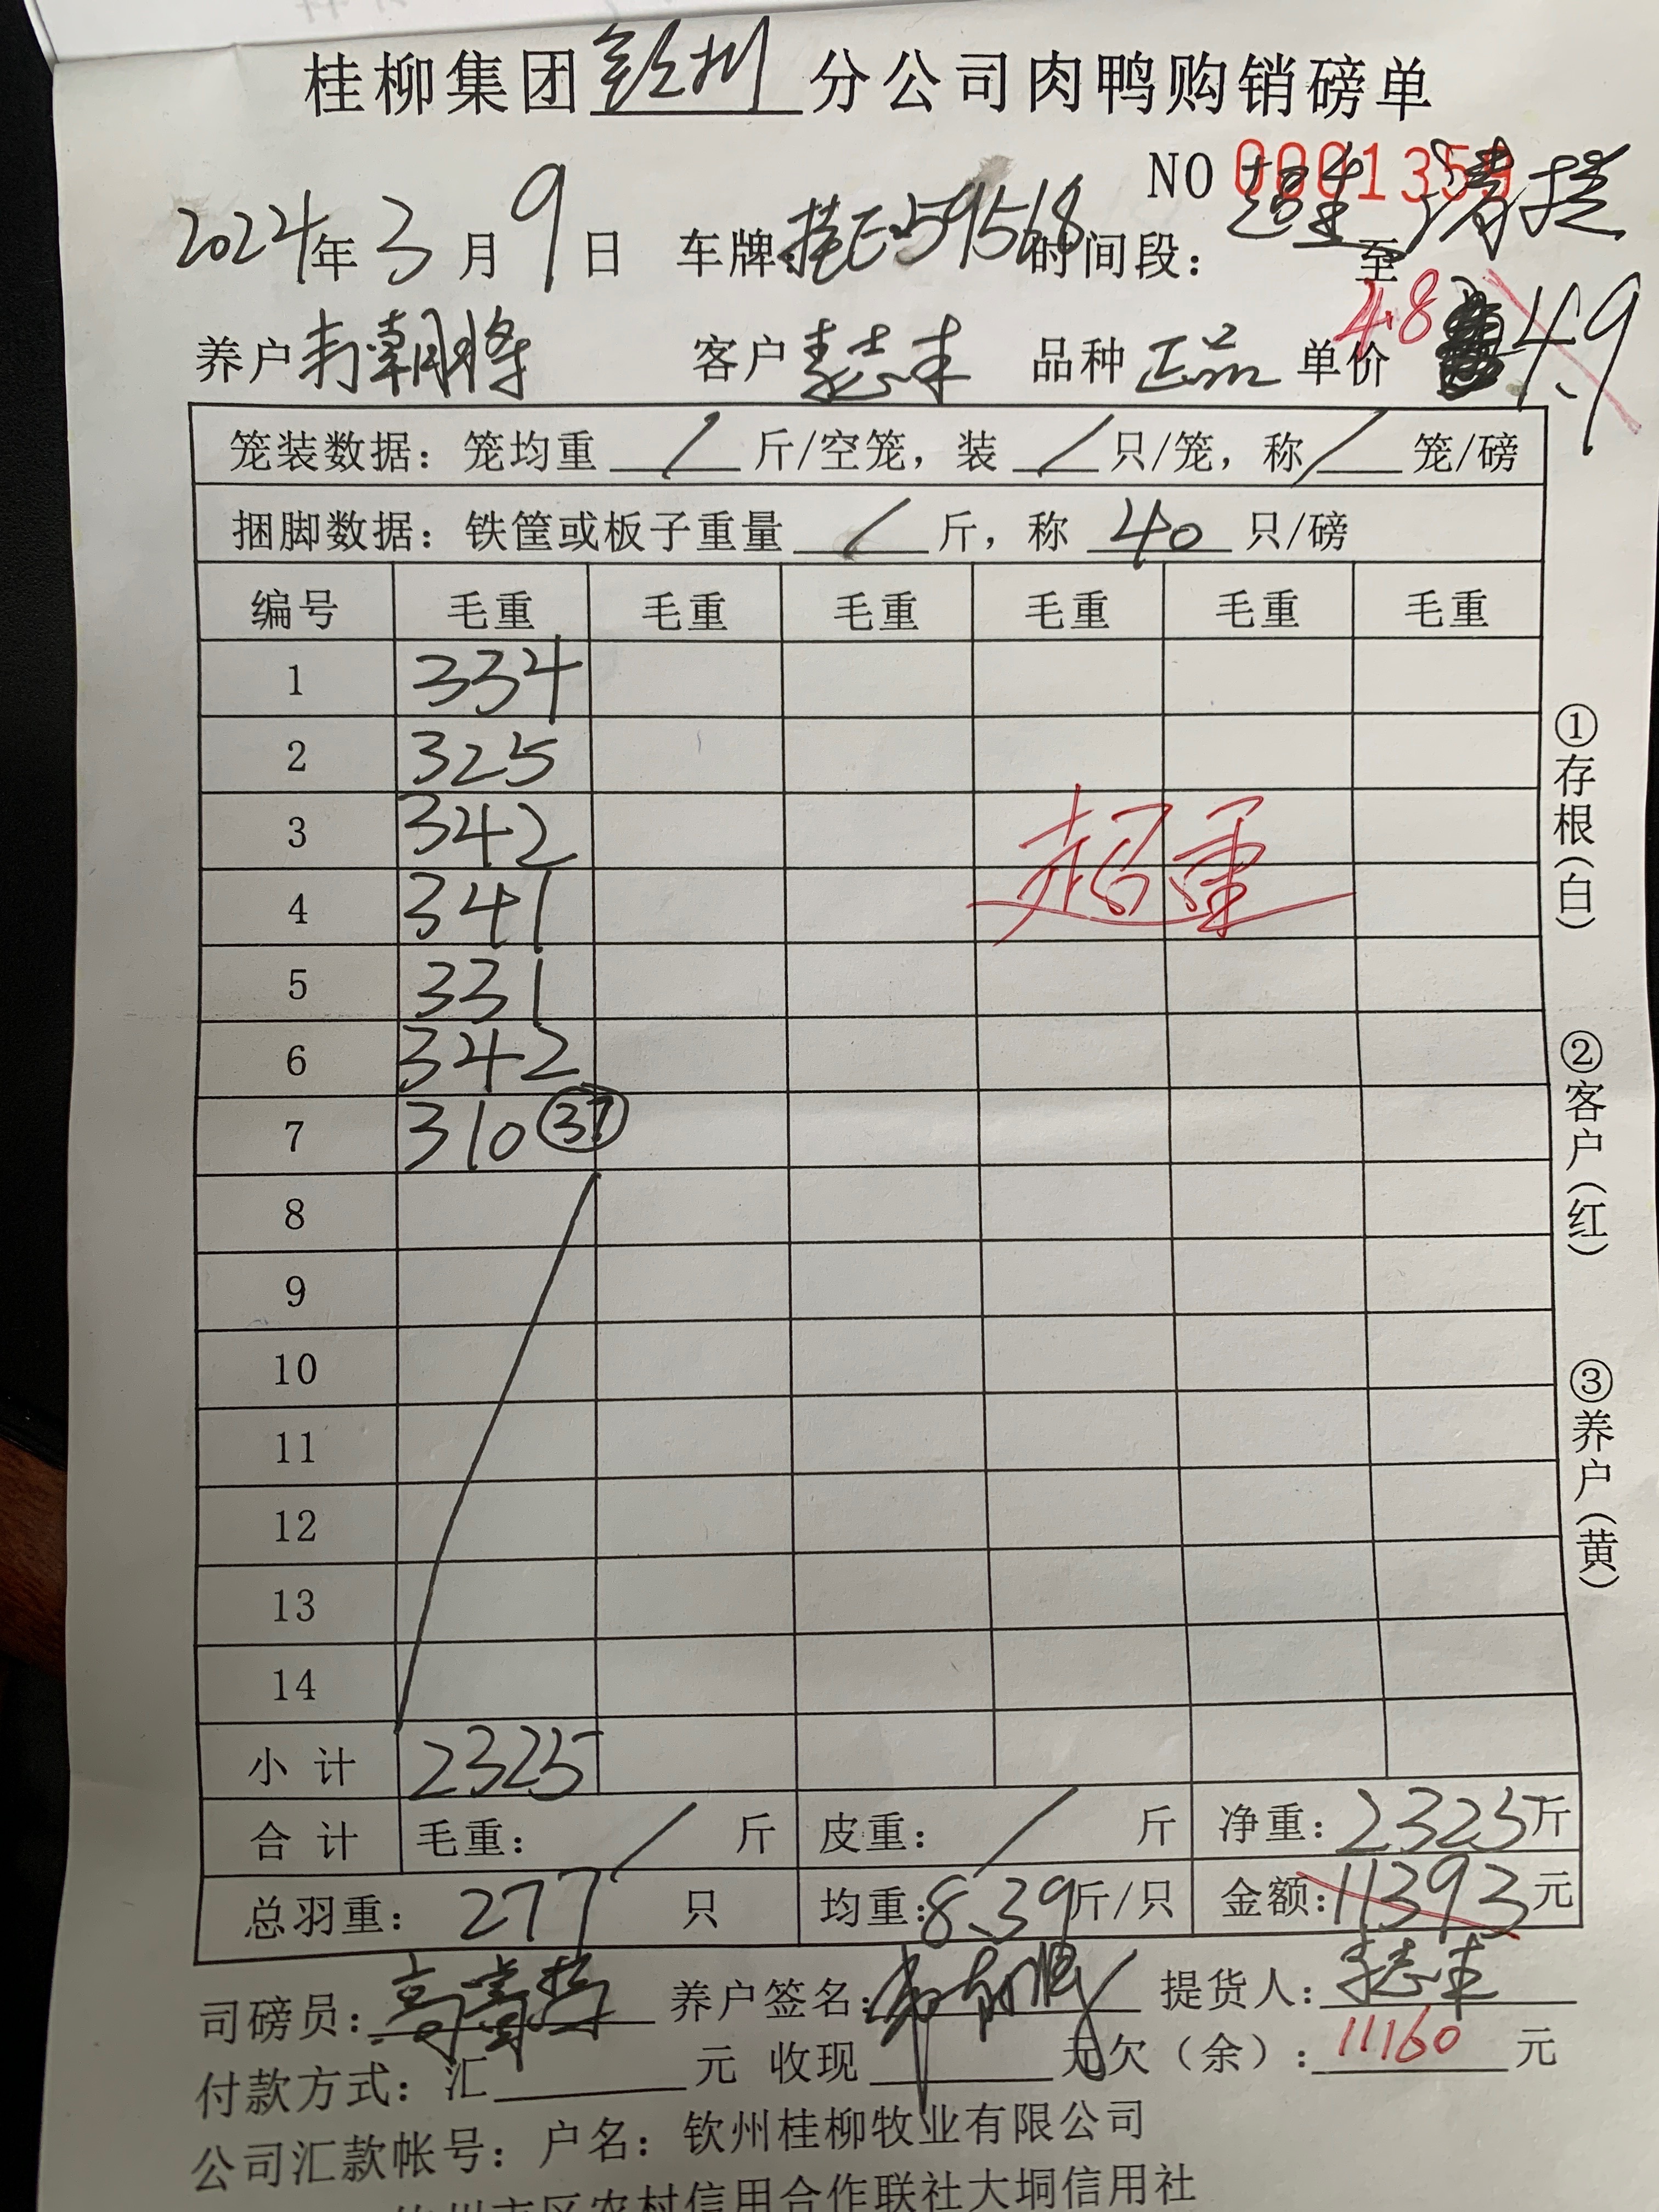 桂柳集团钦州分公司肉鸭购销磅单
NO 0001359
超重 请提
2024年3月9日 车牌 桂E·59568 时间段: 至
养户 朝将 客户 李志来 品种 正品 单价 4.8 4.9
笼装数据:笼均重 / 斤/空笼,装 / 只/笼,称 / 笼/磅
捆脚数据:铁筐或板子重量 / 斤,称 40 只/磅
编号 毛重 毛重 毛重 毛重 毛重 毛重
1 334
2 325
3 342
4 341
超重
5 331
6 342
7 310 37
8
9
10
11
12
13
14
小计 2325
合计 毛重: / 斤 皮重: / 斤 净重:2325斤
总羽重:277只 均重:8.39斤/只 金额:11393元
司磅员: 养户签名: 提货人:李志来
付款方式:汇 元 收现 元欠(余):11160元
公司汇款帐号:户名:钦州桂柳牧业有限公司
钦州市区农村信用合作联社大垌信用社
①存根(白)
②客户(红)
③养户(黄)